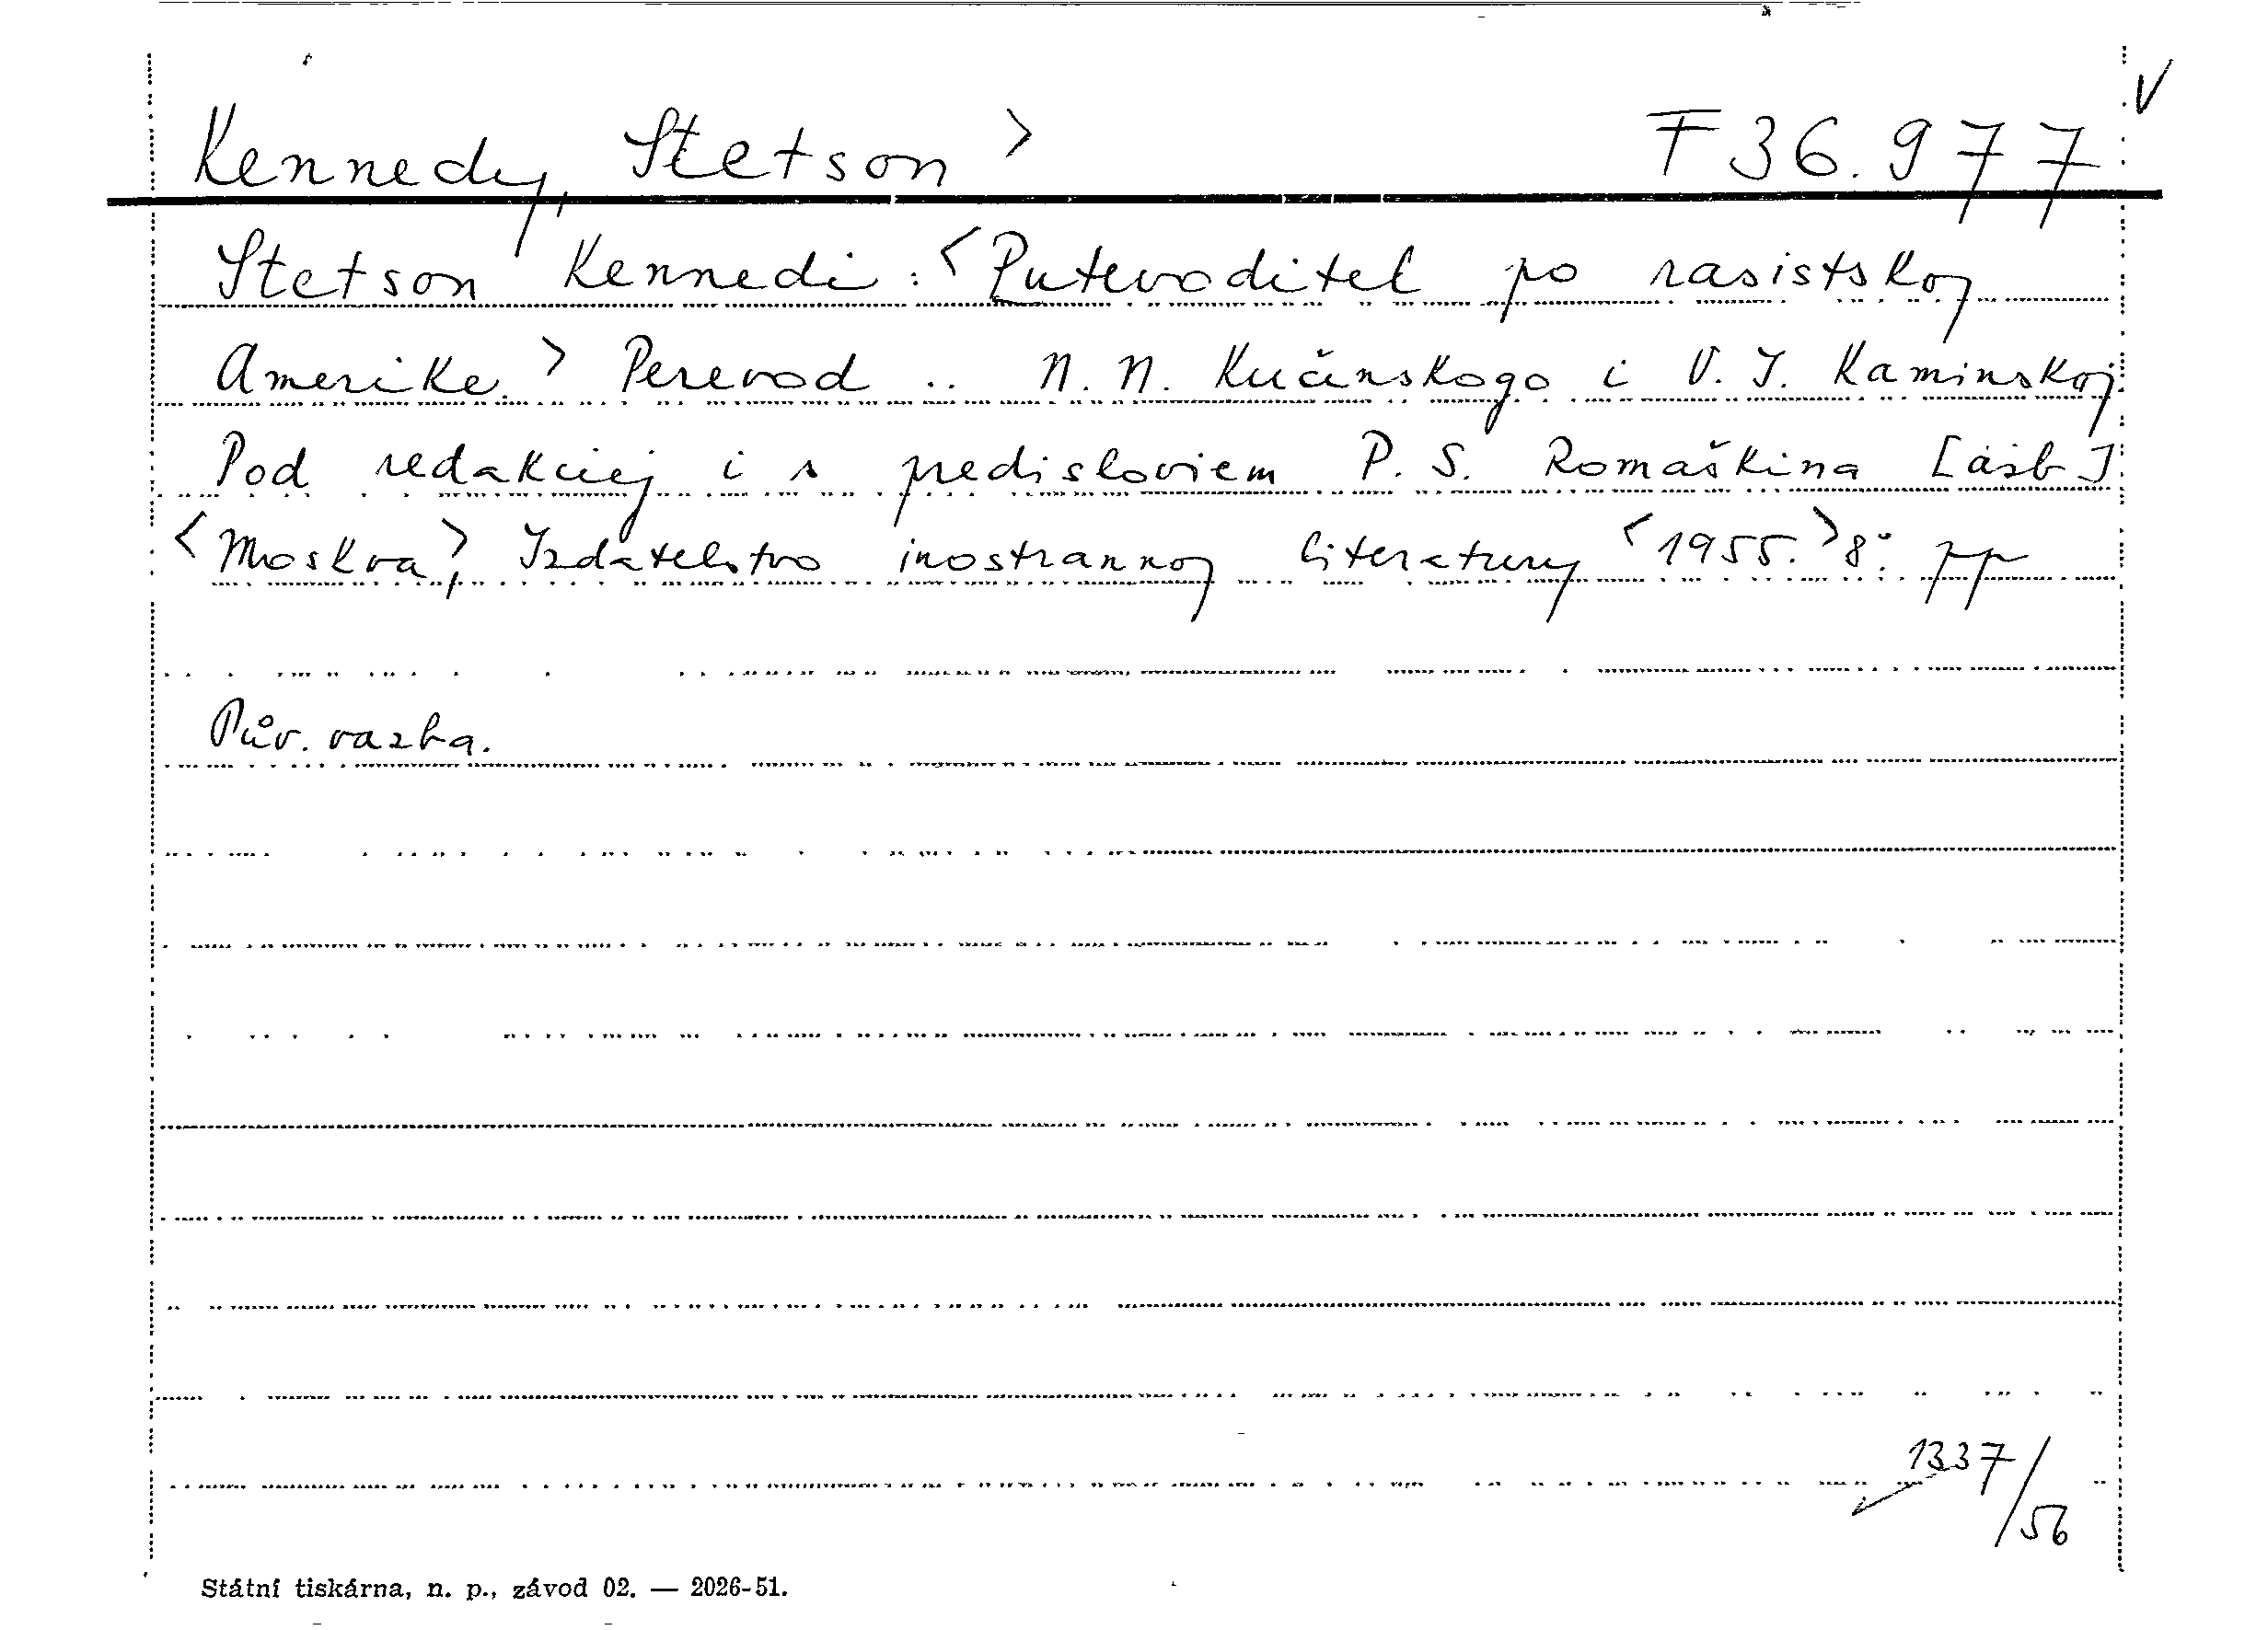 Kennedy, Stetson > F 36.977 V
Stetson Kennedi: <Putevoditel po rasistskoj
Amerike.> Perevod .. N. N. Kučinskogo i V. I. Kaminskoj
Pod redakciej i s predisloviem P. S. Romaškina [ázb]
<Moskva>, Izdatelstvo inostrannoj literatury <1955.> 8° pp
Pův. vazba.
1337/56
Státní tiskárna, n. p., závod 02. — 2026-51.